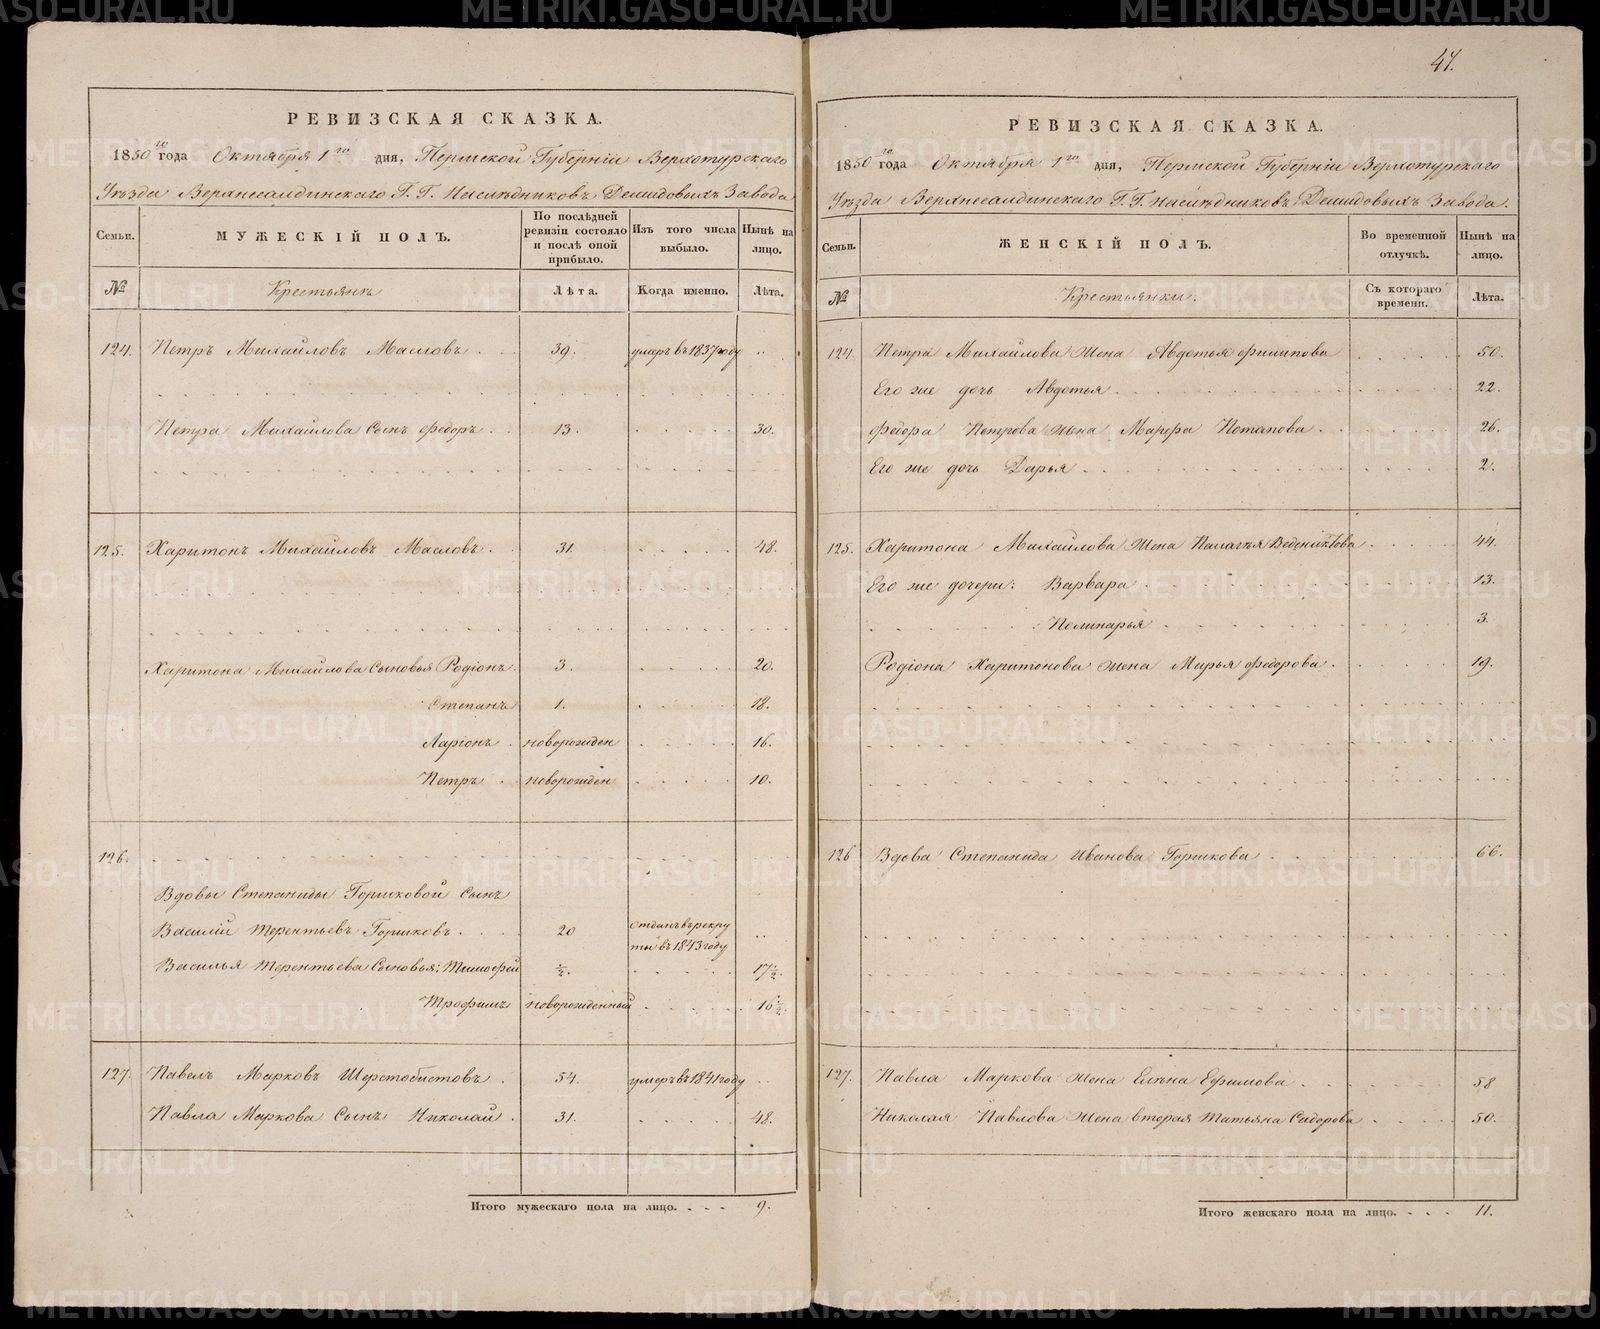 РЕВИЗСКАЯ СКАЗКА.
1850го года Октября 1го дня, Пермской Губернiи Верхотурскаго
Уѣзда Верхнесалдинскаго Г.Г. Наслѣдниковъ Демидовыхъ Завода
Семьи.
МУЖЕСКIЙ ПОЛЪ.
По послѣдней ревизiи состояло и послѣ оной прибыло.
Изъ того числа выбыло.
Нынѣ на лицо.
№
Крестьянъ
Лѣта.
Когда именно.
Лѣта.
124. Петръ Михайловъ Масловъ 39. умеръ въ 1837 году
Петра Михайлова Сынъ Федоръ 13. 30.
125. Харитонъ Михайловъ Масловъ 31. 48.
Харитона Михайлова Сыновья Родiонъ 3. 20.
Степанъ 1. 18.
Ларiонъ новорожден 16.
Петръ новорожден 10.
126.
Вдовы Степаниды Горшковой Сынъ
Василiй Терентьевъ Горшковъ 20 отданъ в рекру
ты въ 1843 году
Василья Терентьева Сыновья: Тимофей ½. 17½.
Трофимъ новорожденный 16½.
127. Павелъ Марковъ Шерстобитовъ 54. умеръ въ 1841 году
Павла Маркова Сынъ Николай 31. 48.
Итого мужескаго пола на лицо. 9.
47.
РЕВИЗСКАЯ СКАЗКА.
1850го года Октября 1го дня, Пермской Губернiи Верхотурскаго
Уѣзда Верхнесалдинскаго Г.Г. Наслѣдниковъ Демидовыхъ Завода.
Семьи.
ЖЕНСКIЙ ПОЛЪ.
Во временной отлучкѣ.
Нынѣ на лицо.
№
Крестьянки.
Съ котораго времени.
Лѣта.
124. Петра Михайлова Жена Авдотья Филипова 50.
Его же дочь Авдотья 22.
Федора Петрова жена Марфа Потапова 26.
Его же дочь Дарья 2.
125. Харитона Михайлова Жена Палагѣя Ведениктова 44.
Его же дочери: Варвара 13.
Полинарья 3.
Родiона Харитонова жена Марья Федорова 19.
126 Вдова Степанида Иванова Горшкова 66.
127. Павла Маркова Жена Елѣна Ефимова 58
Николая Павлова Жена вторая Татьяна Сидорова 50.
Итого женскаго пола на лицо. 11.
METRIKI.GASO-URAL.RU